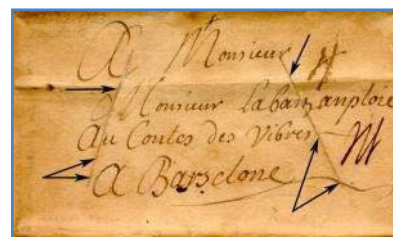 A Monsieur
Monsieur labart, anploie
au Contes des Vibres
A Barselone